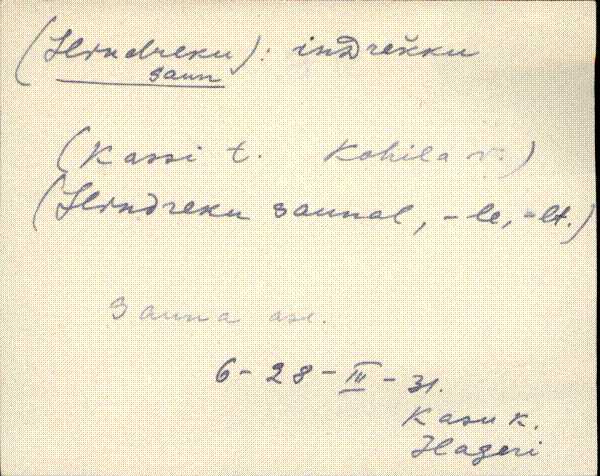 (Hindreku): indrekku
saun
(Kassi t. Kohila v.)
(Hindreku saunal, -le, -lt.)
Sauna ase.
6-28-III-31.
Kasu k.
Hageri